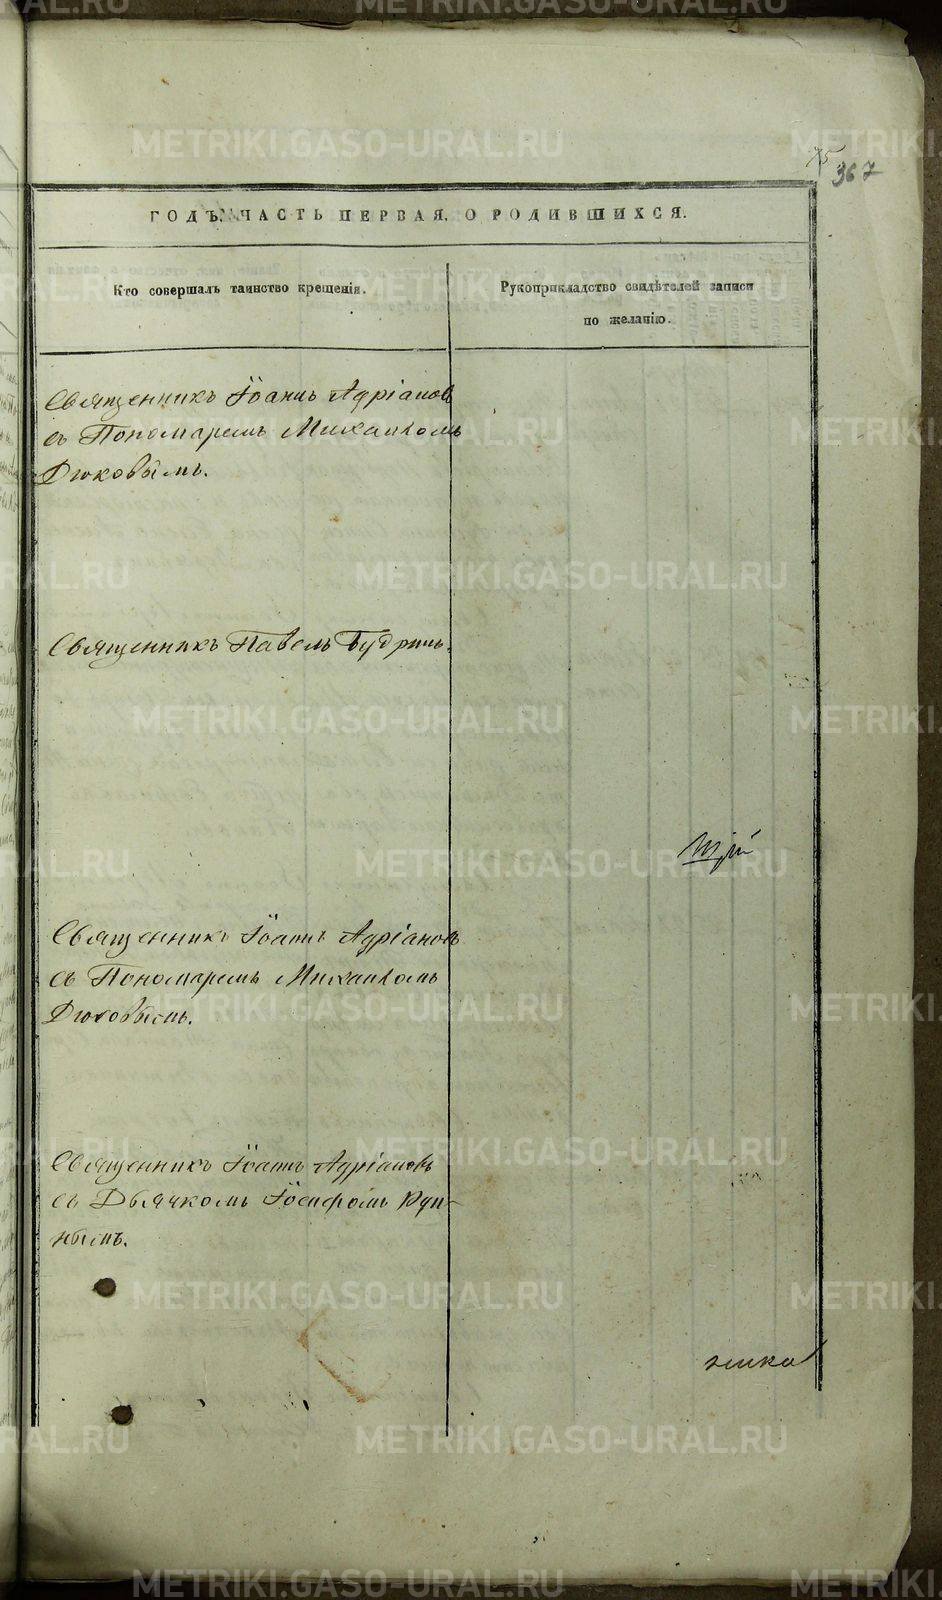 75
367
ГОДЪ. ЧАСТЬ ПЕРВАЯ, О РОДИВШИХСЯ.
Кто совершалъ таинство крещенія.
Рукоприкладство свидѣтелей записи
по желанію.
Священникъ Іоаннъ Адріановъ
съ Пономаремъ Михаиломъ
Дюковымъ.
Священникъ Павелъ Будринъ.
Священникъ Іоаннъ Адріановъ
съ Пономаремъ Михаиломъ
Дюковымъ.
Священникъ Іоаннъ Адріановъ
съ Дьячкомъ Іосифомъ Руп-
нымъ.
METRIKI.GASO-URAL.RU